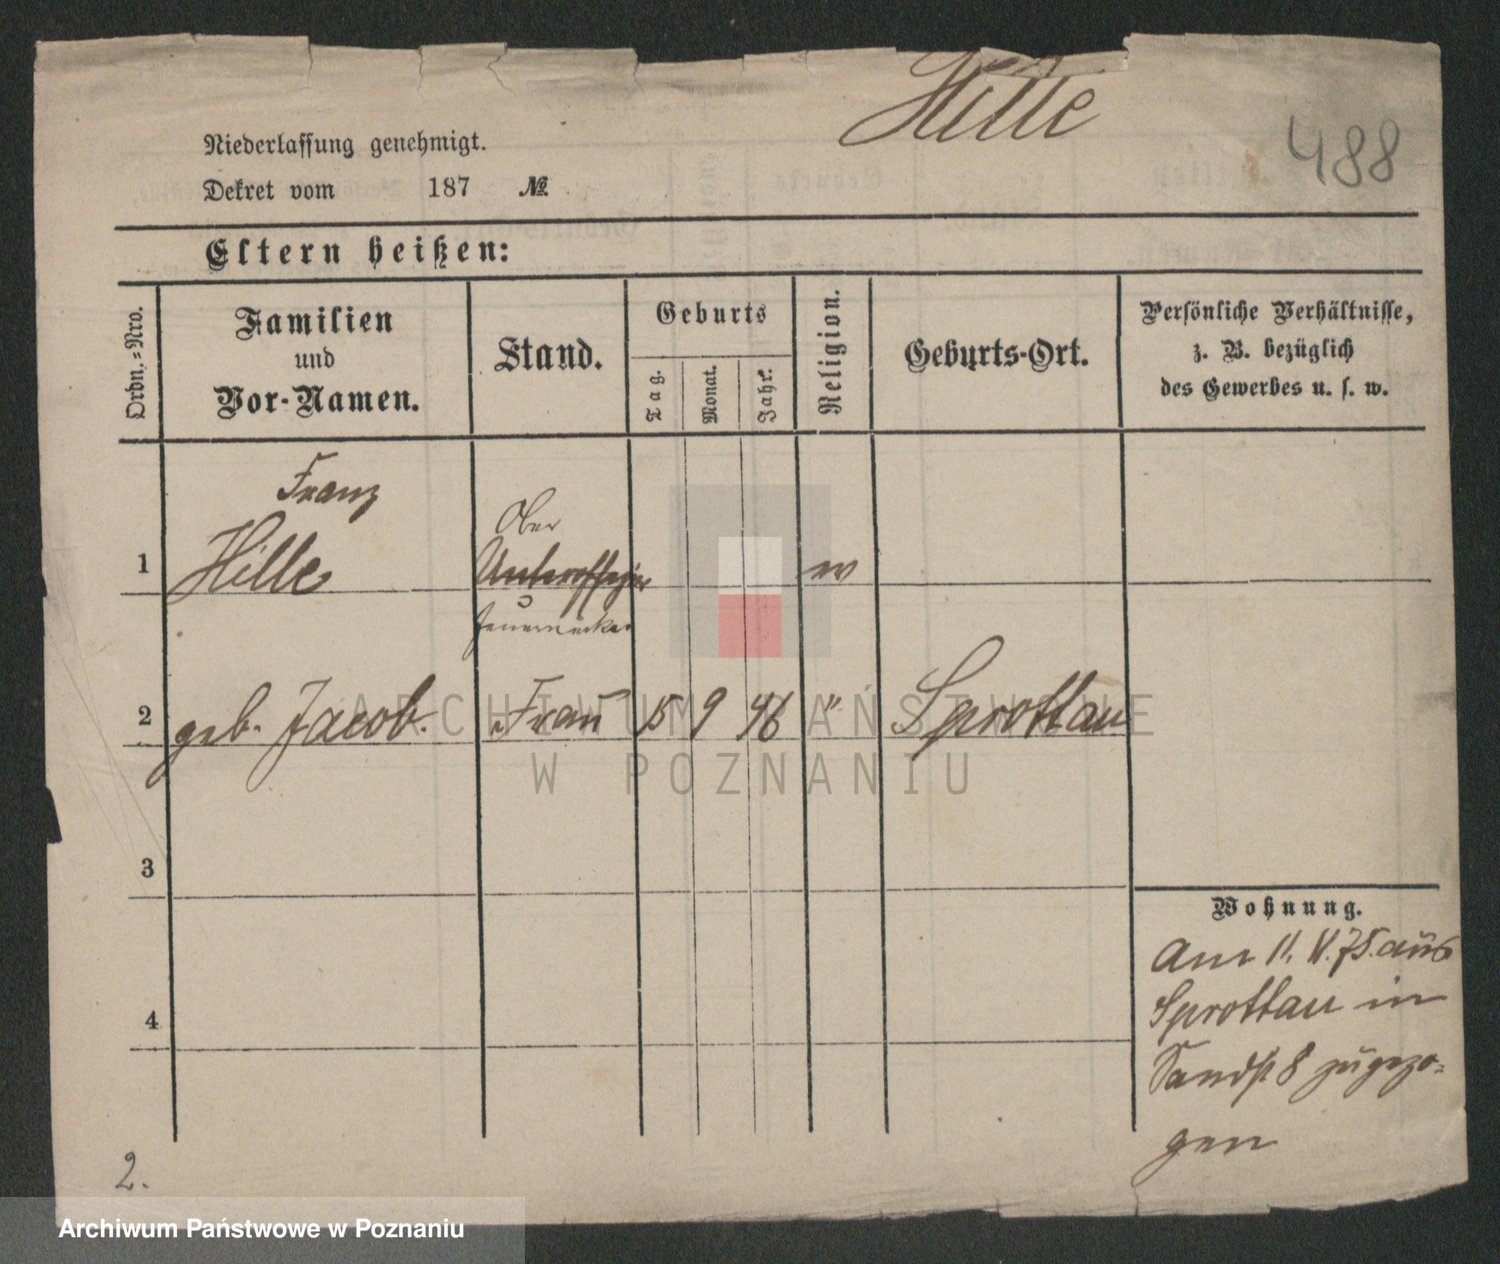 Hille
488
Niederlassung genehmigt.
Dekret vom 187 №
Eltern heißen:
Ordn.-Nro.
Familien
und
Vor-Namen.
Stand.
Geburts
Tag.
Monat.
Jahr.
Religion.
Geburts-Ort.
Persönliche Verhältnisse,
z. B. bezüglich
des Gewerbes u. s. w.
Franz
Ober
1 Hille Unteroffizier ev
2 geb. Jacob. Frau 15 9 46 " Sprottau
3
4
Wohnung.
Am 11. V. 75. aus
Sprottau in
Sandst 8 zugezo-
gen
2.
ARCHIWUM PAŃSTWOWE
W POZNANIU
Archiwum Państwowe w Poznaniu